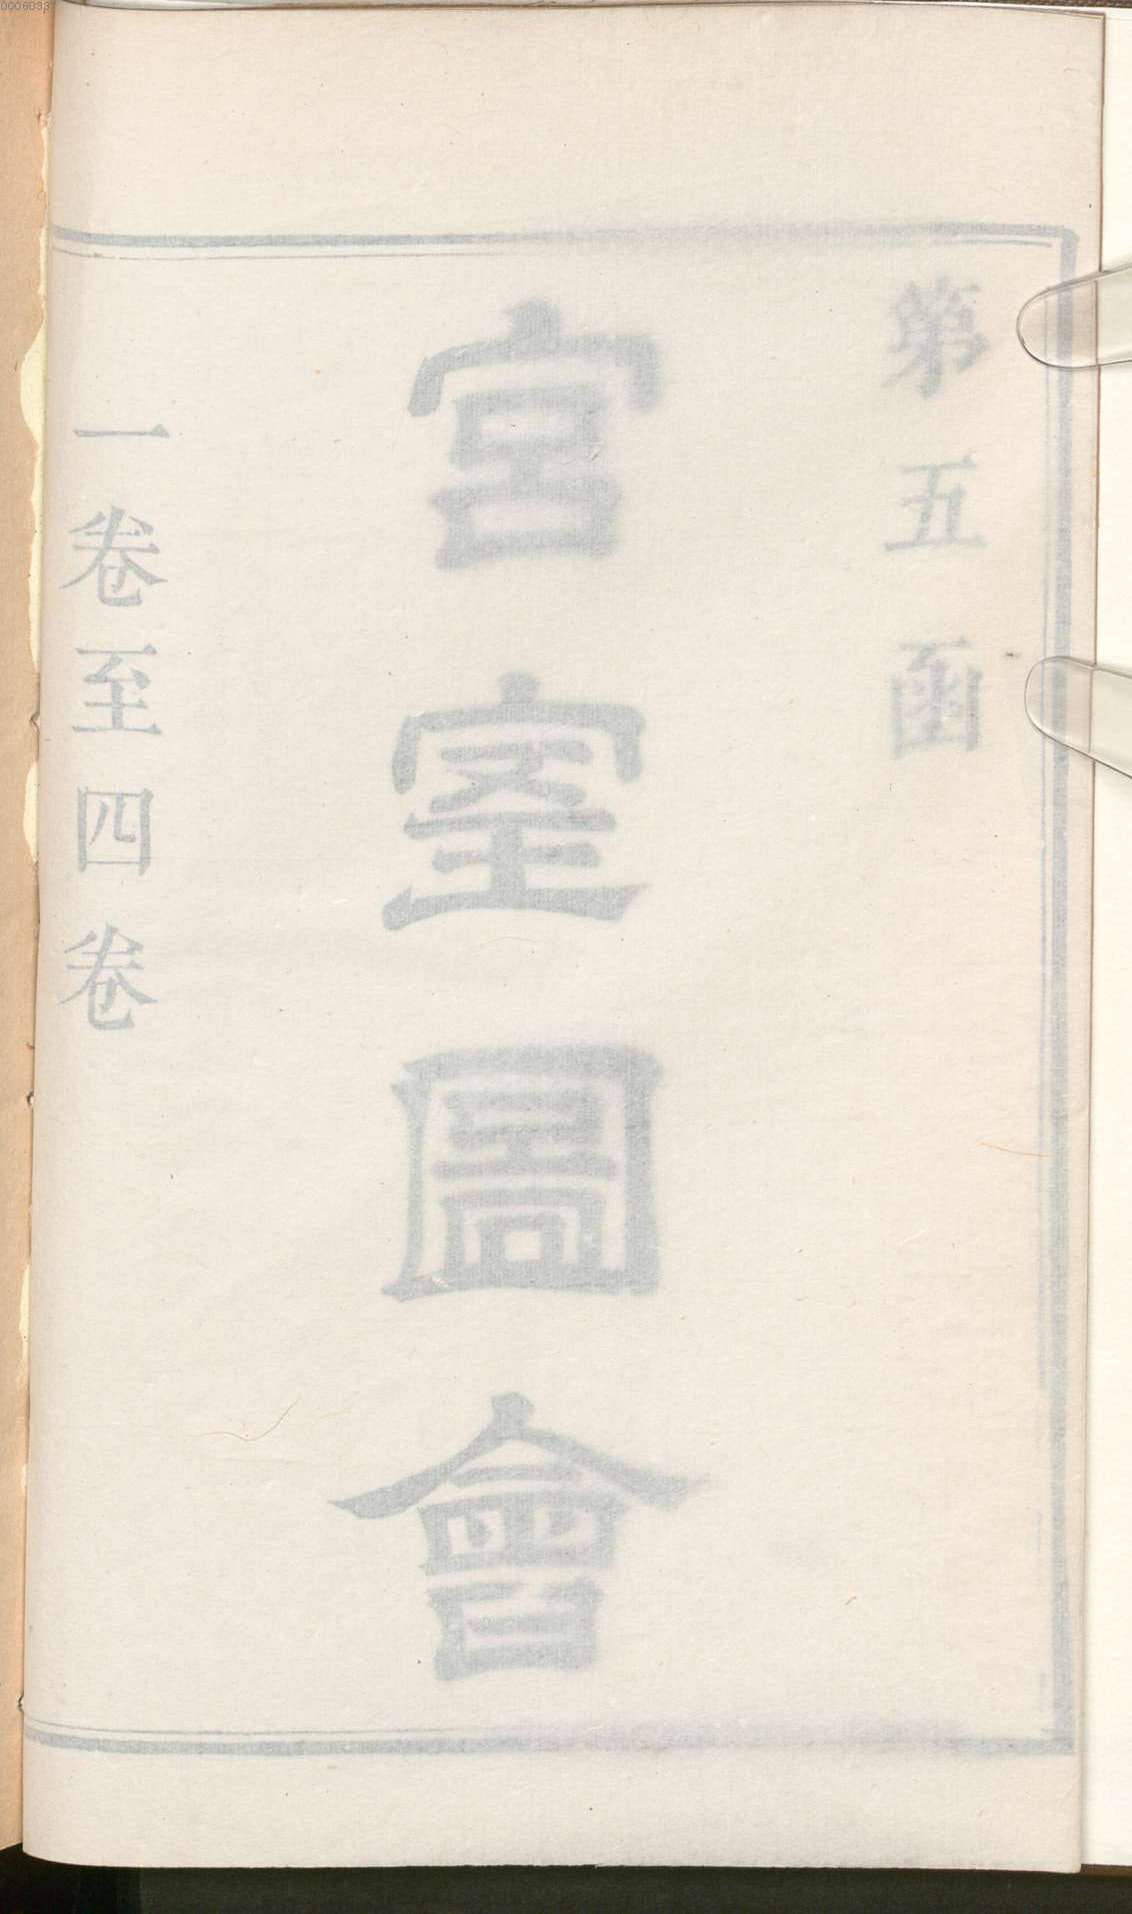 第五函
宮室圖會
一卷至四卷